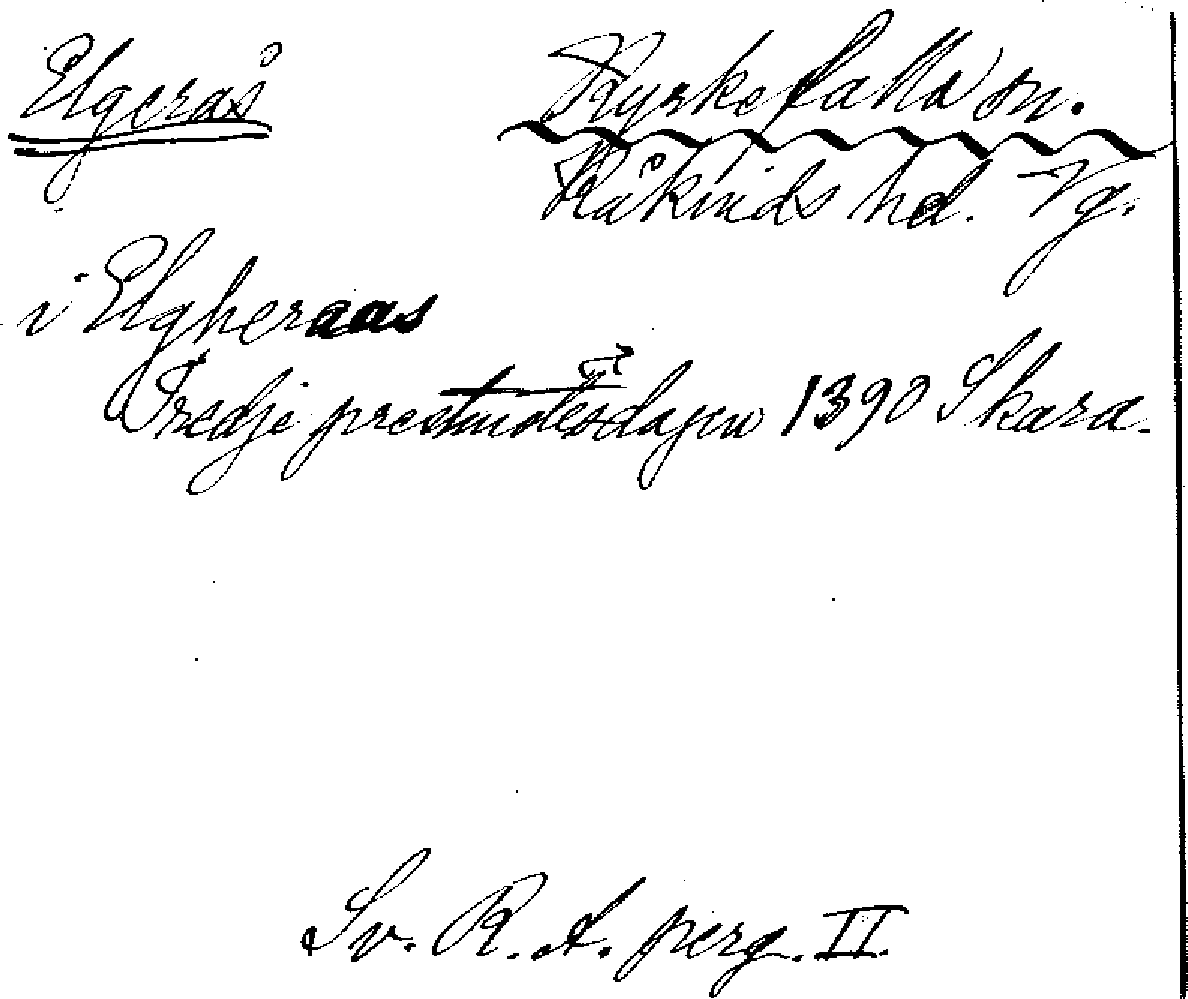 Elgerås
Kyrkefalla sn.
Kåkinds hd. Vg.
i Elgheraas
Tredje prestmötesdagen 1390 Skara.
Sv. R. A. perg. II.